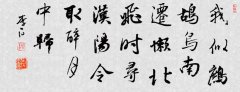 我似鹧
鸪鸟南
迁懒北
飞时寻
汉阳令
取醉月
中归